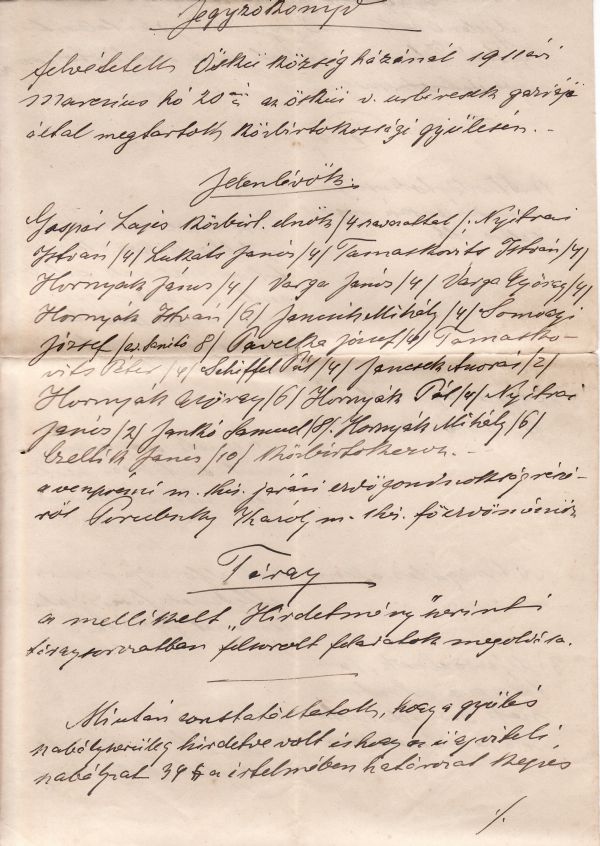 Jegyzőkönyv
felvétetett Öskü községházánál 1911 évi
Marczius hó 20 án az öskü v. urbéresek gazdái
által megtartott közbirtokossági gyülésén. -
Jelenlévők:
Gaspár Lajos közbirt. elnök /4 szavazattal/: Nyitrai
István /4/ Lukáts János /4/ Tamaskovits István /4/
Hornyák János /4/ Varga János /4/ Varga György /4/
Hornyák István /6/ Jancsik Mihály /4/ Somogyi
József /ev. tanitó 8/ Pavelka József /4/ Tamasko-
vits Péter /4/ Schiffel Pál /4/ Jancsek András /2/
Hornyák György /6/ Hornyák Pál /4/ Nyitrai
János /2/ Jankó Samuel /8/ Hornyák Mihály /6/
Czellik János /10/ közbirtokosok. -
a veszprémi m. kir. járási erdőgondnokság részé-
ről Porubszky Károly m. kir. főerdőmérnök
Tárgy
a mellékelt „Hirdetmény" szerinti
tárgysorozatban felsorolt feladatok megoldása.
Miután constatáltatott, hogy a gyülés
szabályszerüleg hirdetve volt és hogy az ügyviteli
szabályzat 34 § a értelmében határozat képes
./.